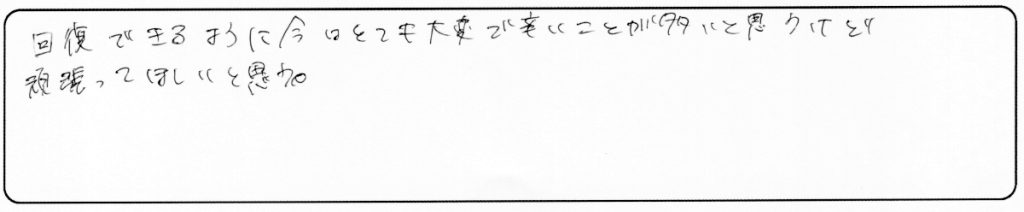 回復できるように今はとても大変で辛いことが多いと思うけど
頑張ってほしいと思う。